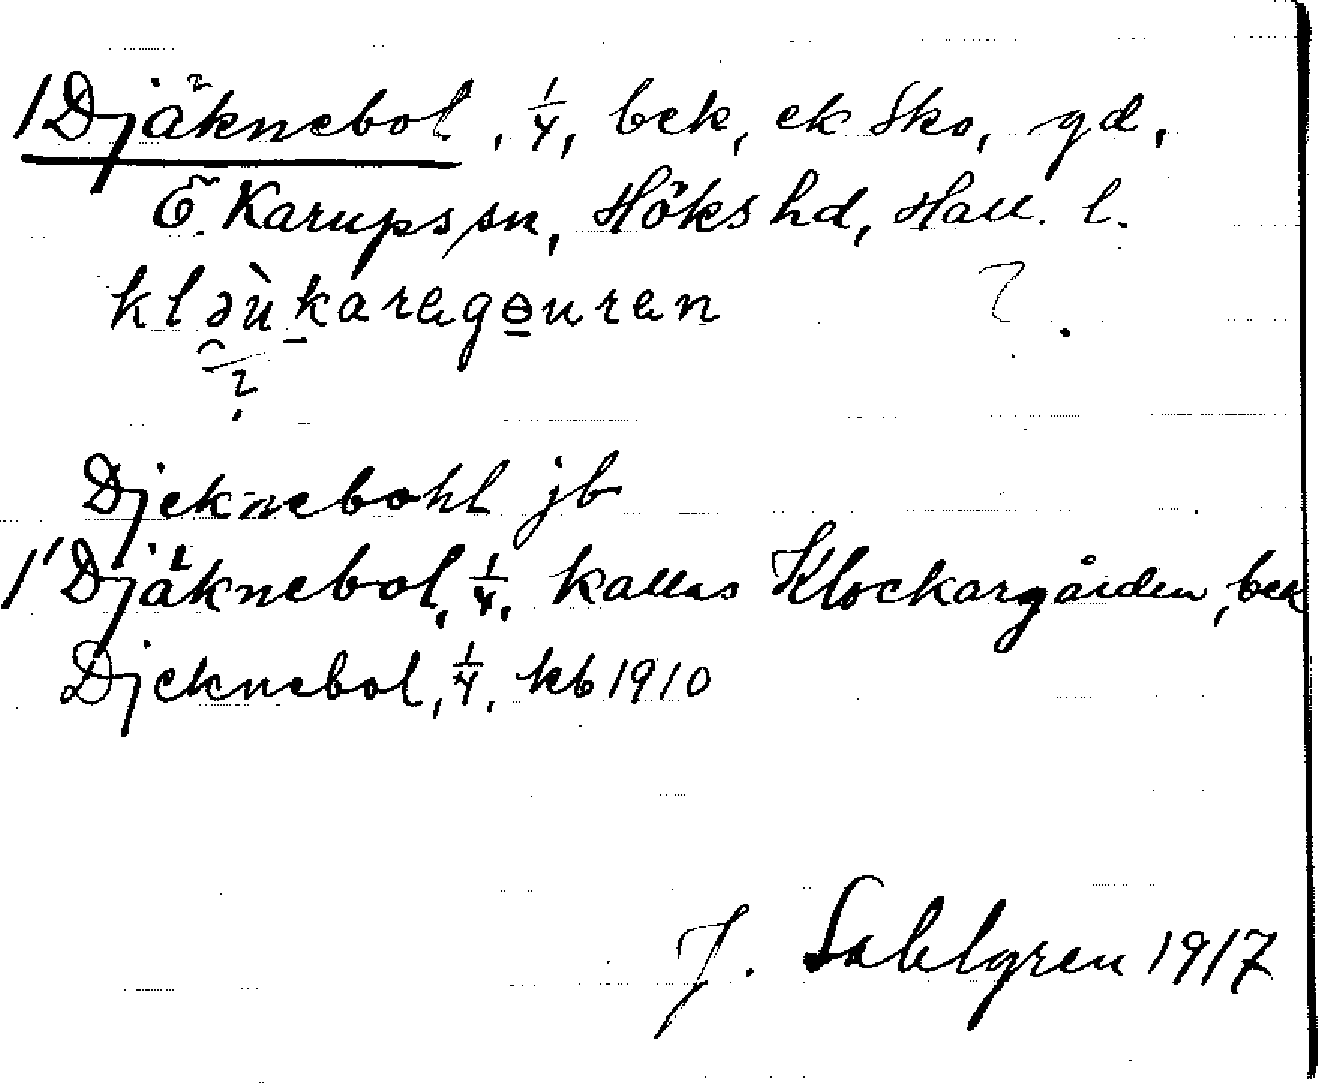 /Djäknebol, 1/4, bek, ek Sko, gd,
Ö. Karups sn, Höks hd, Hall. l.
kləùkaragɵuran ?.
?
Djeknebohl jb
/' Djäknebol, 1/4, kallas Klockargården, bek
Djeknebol, 1/4, kb 1910
J. Sahlgren 1917